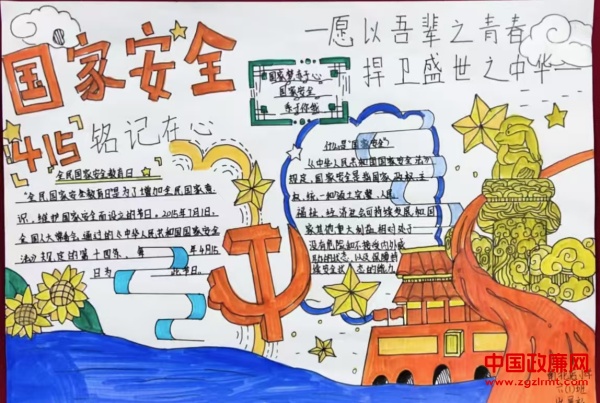 国家安全
一愿以吾辈之青春
捍卫盛世之中华一
国家安全
415
铭记在心
全民国家安全教育日
"全民国家安全教育日是为了增加全民国家意
识,维护国家安全而设立的节日,2015年7月1日,
全国人大常委会通过的《中华人民共和国国家安全
法》规定的第十四条,每年4月15
日为
什么是"国家安全"?
《中华人民共和国国家安全法》
规定,国家安全是指国家政权、主
权、统一和领土完整、人民
福祉、经济社会可持续发展和国
家其他重大利益相对处于
没有危险和不受内外威
胁的状态,以及保障持
续安全状态的能力
中国政廉网
www.zgzlrmt.com